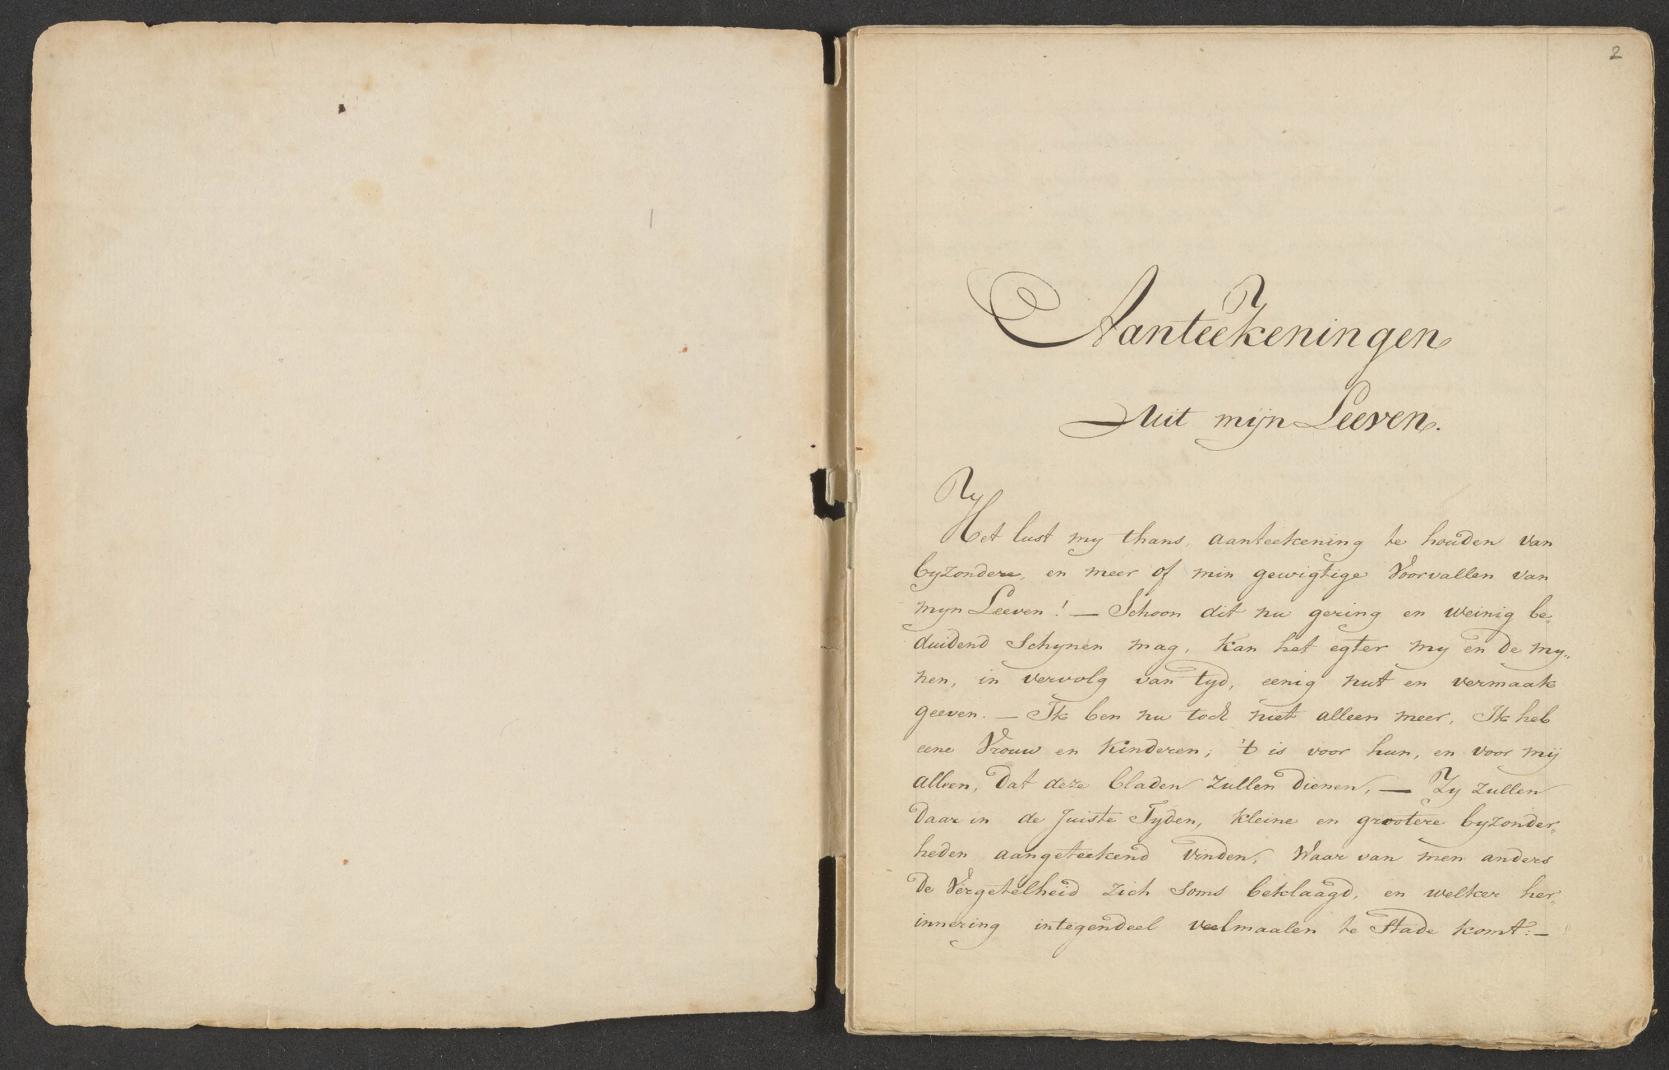 2
Aanteekeningen
Uit mijn Leeven.
Het lust my thans, aanteekening te houden van
byzondere, en meer of min gewigtige Voorvallen van
myn Leeven! — Schoon dit nu gering en weinig be„
duidend Schynen mag, kan het egter my en de my„
nen, in vervolg van tyd, eenig nut en vermaak
geeven. — Ik ben nu toch niet alleen meer, Ik heb
eene Vrouw en kinderen; 't is voor hun, en voor mij
alleen, dat deze bladen zullen dienen, — Zy zullen
daar in de juiste Tyden, kleine en grootere byzonder„
heden aangeteekend vinden, Waar van men anders
de Vergetelheid zich soms beklaagd, en welker her„
innering integendeel veelmaalen te Stade komt: —